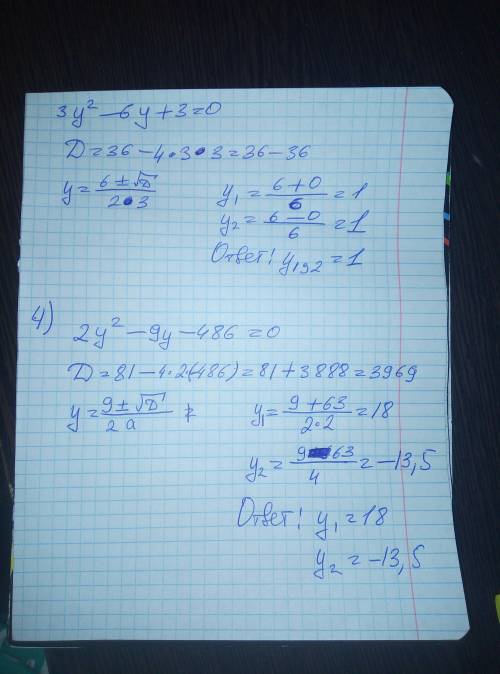 3y² - 6y + 3 = 0
D = 36 - 4•3•3 = 36 - 36
y = (6 ± √D) / (2•3)
y₁ = (6 + 0) / 6 = 1
y₂ = (6 - 0) / 6 = 1
Ответ! y₁,₂ = 1
4)
2y² - 9y - 486 = 0
D = 81 - 4•2(-486) = 81 + 3888 = 3969
y = (9 ± √D) / 2a
y₁ = (9 + 63) / 2•2 = 18
y₂ = (9 - 63) / 4 = -13,5
Ответ! y₁ = 18
y₂ = -13,5